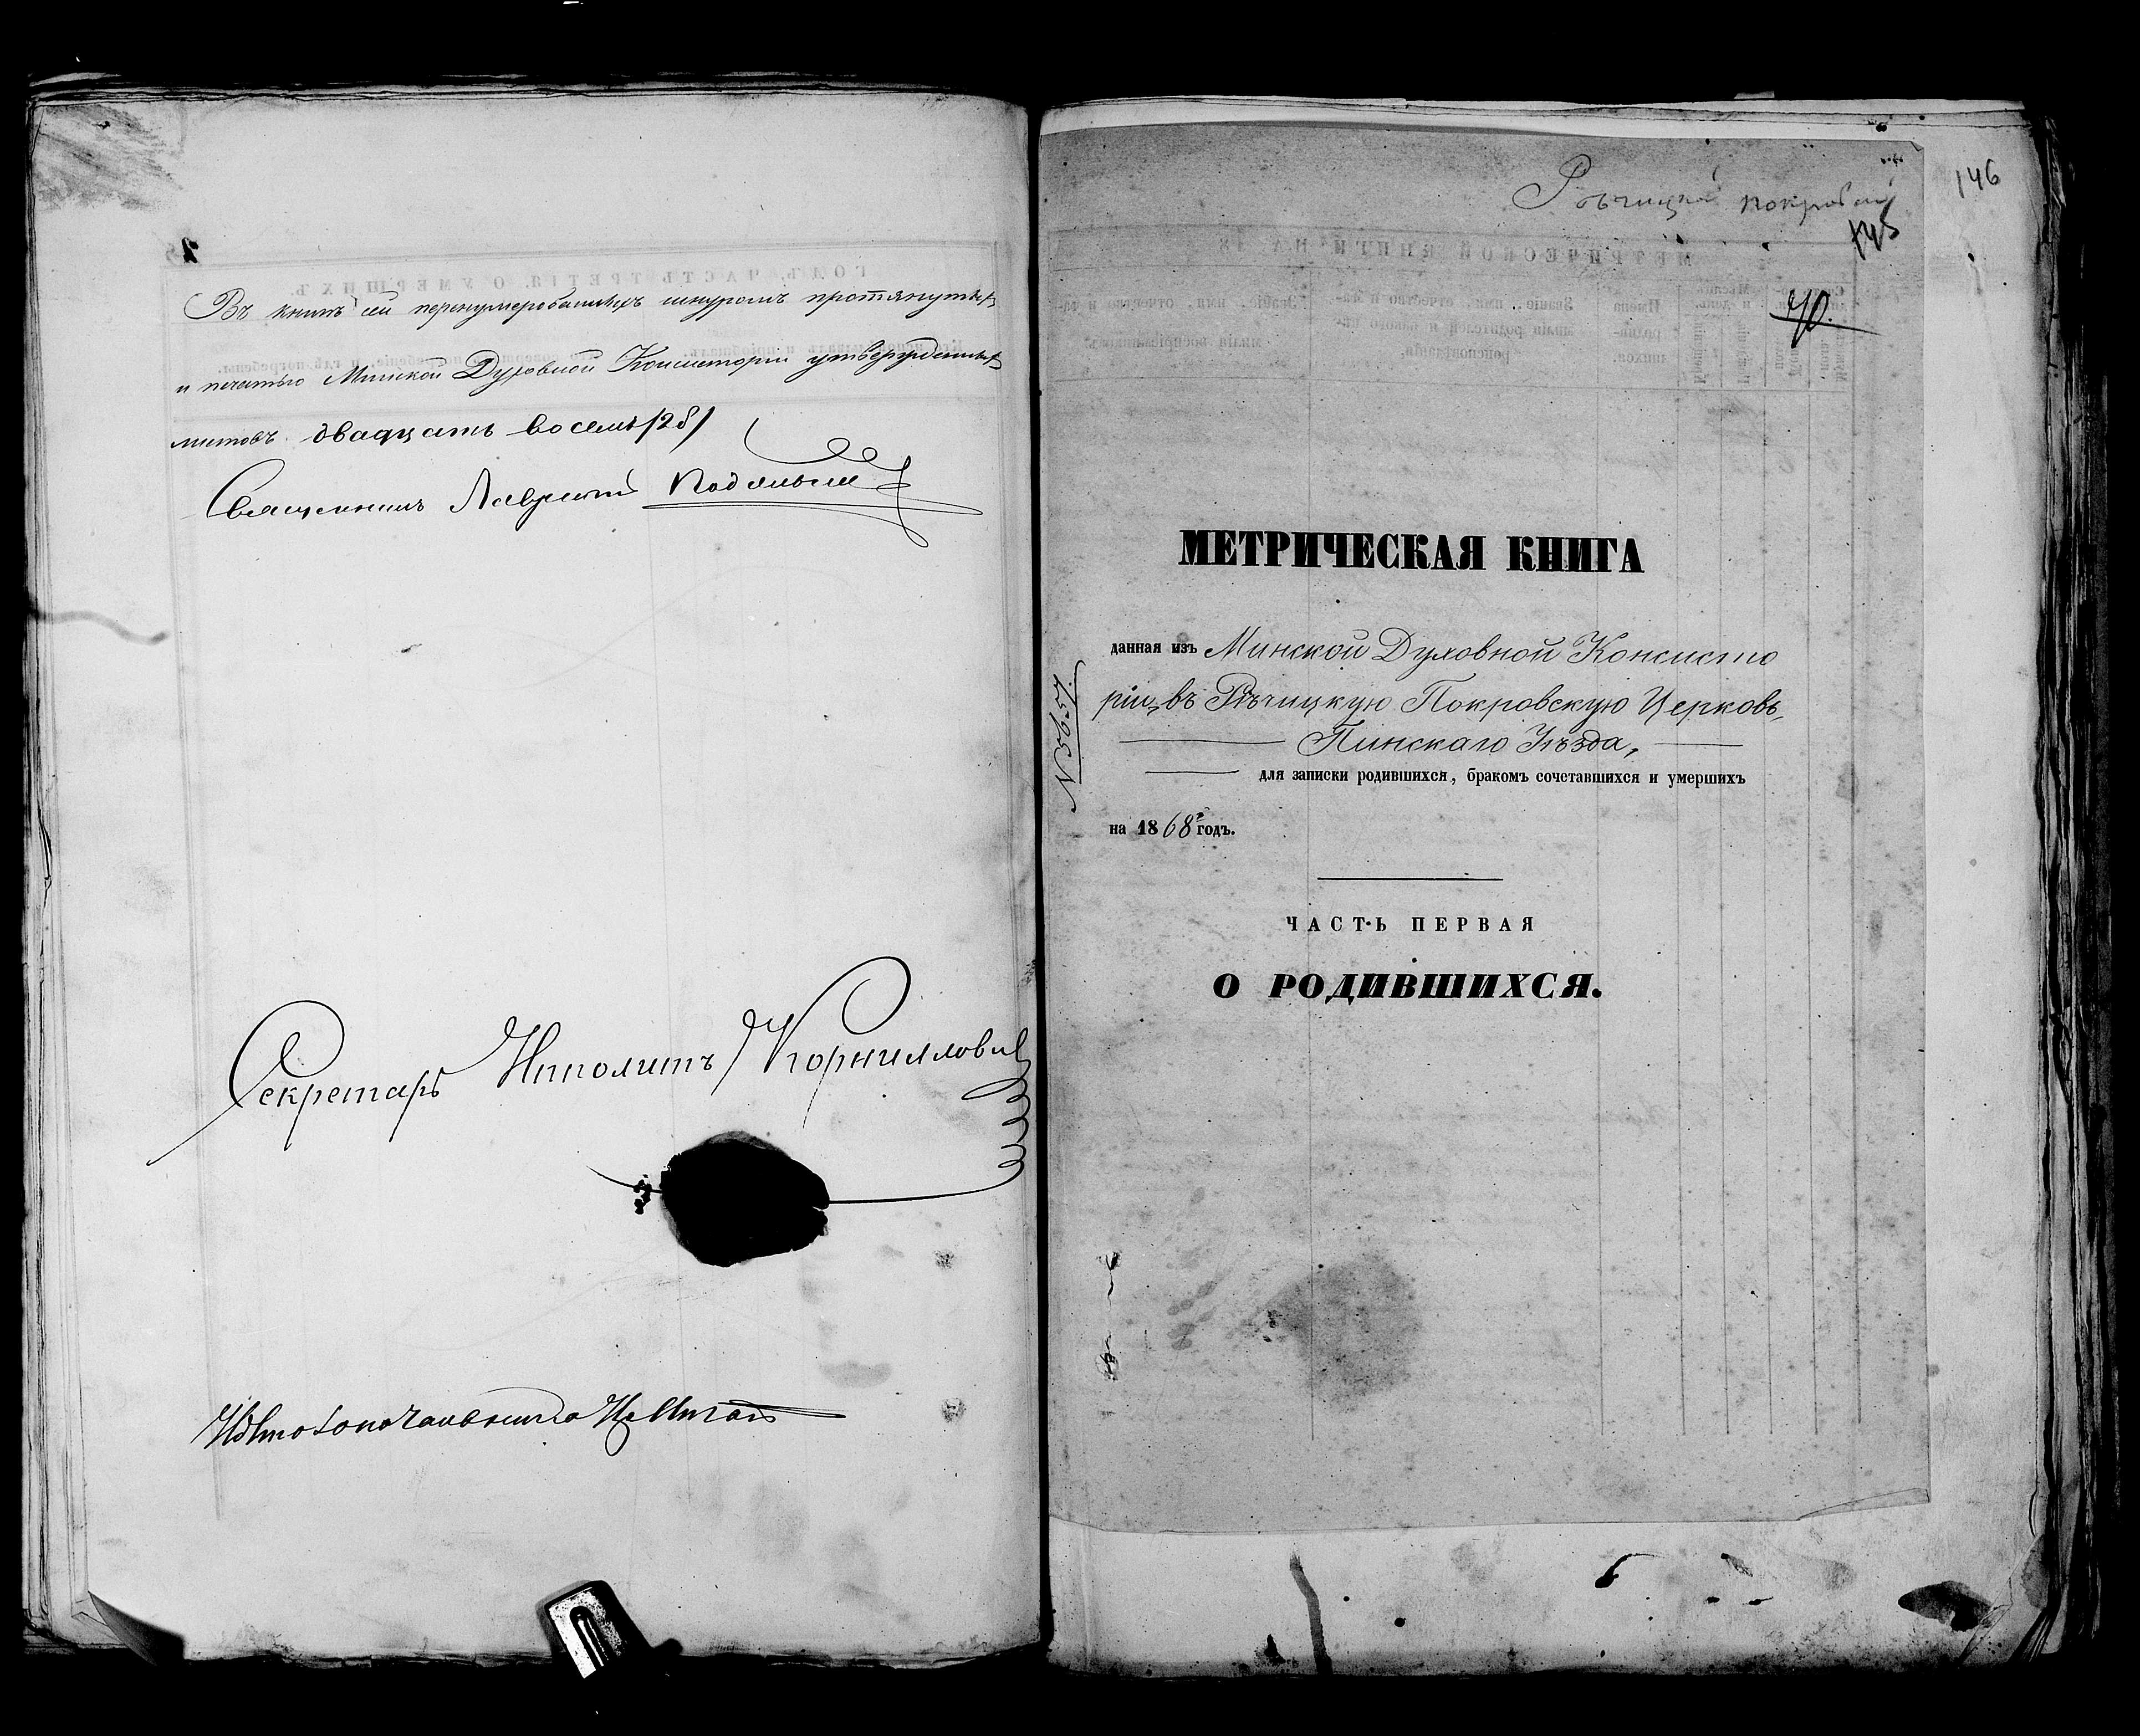 Въ книгѣ сей перенумерованныхъ шнуромъ протянутыхъ
и печатью Минской Духовной Консисторіи утвержденныхъ
листовъ двадцать восемь /28/
Священникъ Лаврентій
Секретарь Иполитъ Корнилович
146
Рѣчицкой покровской
145
40.
МЕТРИЧЕСКАЯ КНИГА
данная изъ Минской Духовной Консисто
ріи, въ Рѣчицкую Покровскую Церковь,
Пинскаго Уѣзда,
для записки родившихся, бракомъ сочетавшихся и умершихъ
на 1868 годъ.
N 5657.
ЧАСТЬ ПЕРВАЯ
О РОДИВШИХСЯ.